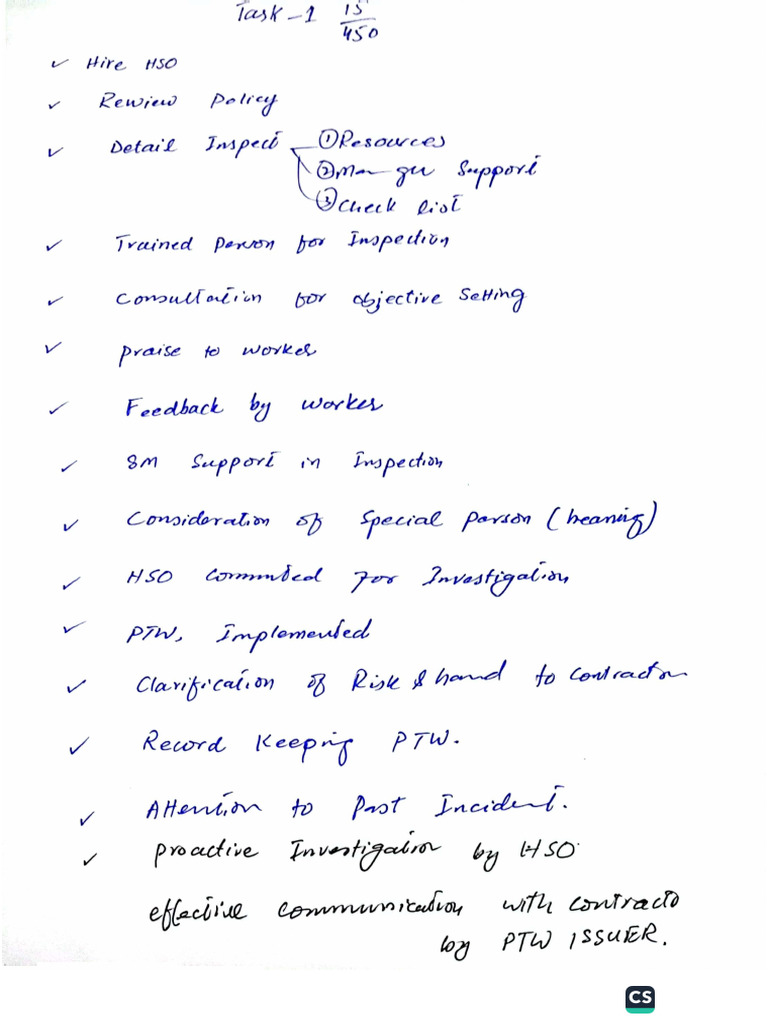 Task-1 15/450
✓ Hire HSO
✓ Rewiew Policy
✓ Detail Inspect ① Resources
② Ma-ger Support
③ Check list
✓ Trained Person for Inspection
✓ Consultation for objective Setting
✓ Praise to worker
✓ Feedback by worker
✓ SM Support in Inspection
✓ Consideration of Special Person (hearing)
✓ HSO Commited For Investigation
✓ PTW, Implemented
✓ Clarification of Risk & hazard to Contractor
✓ Record Keeping PTW.
✓ Attention to Past Incident.
✓ Proactive Investigation by HSO
effective communication with contracto
by PTW ISSUER.
CS